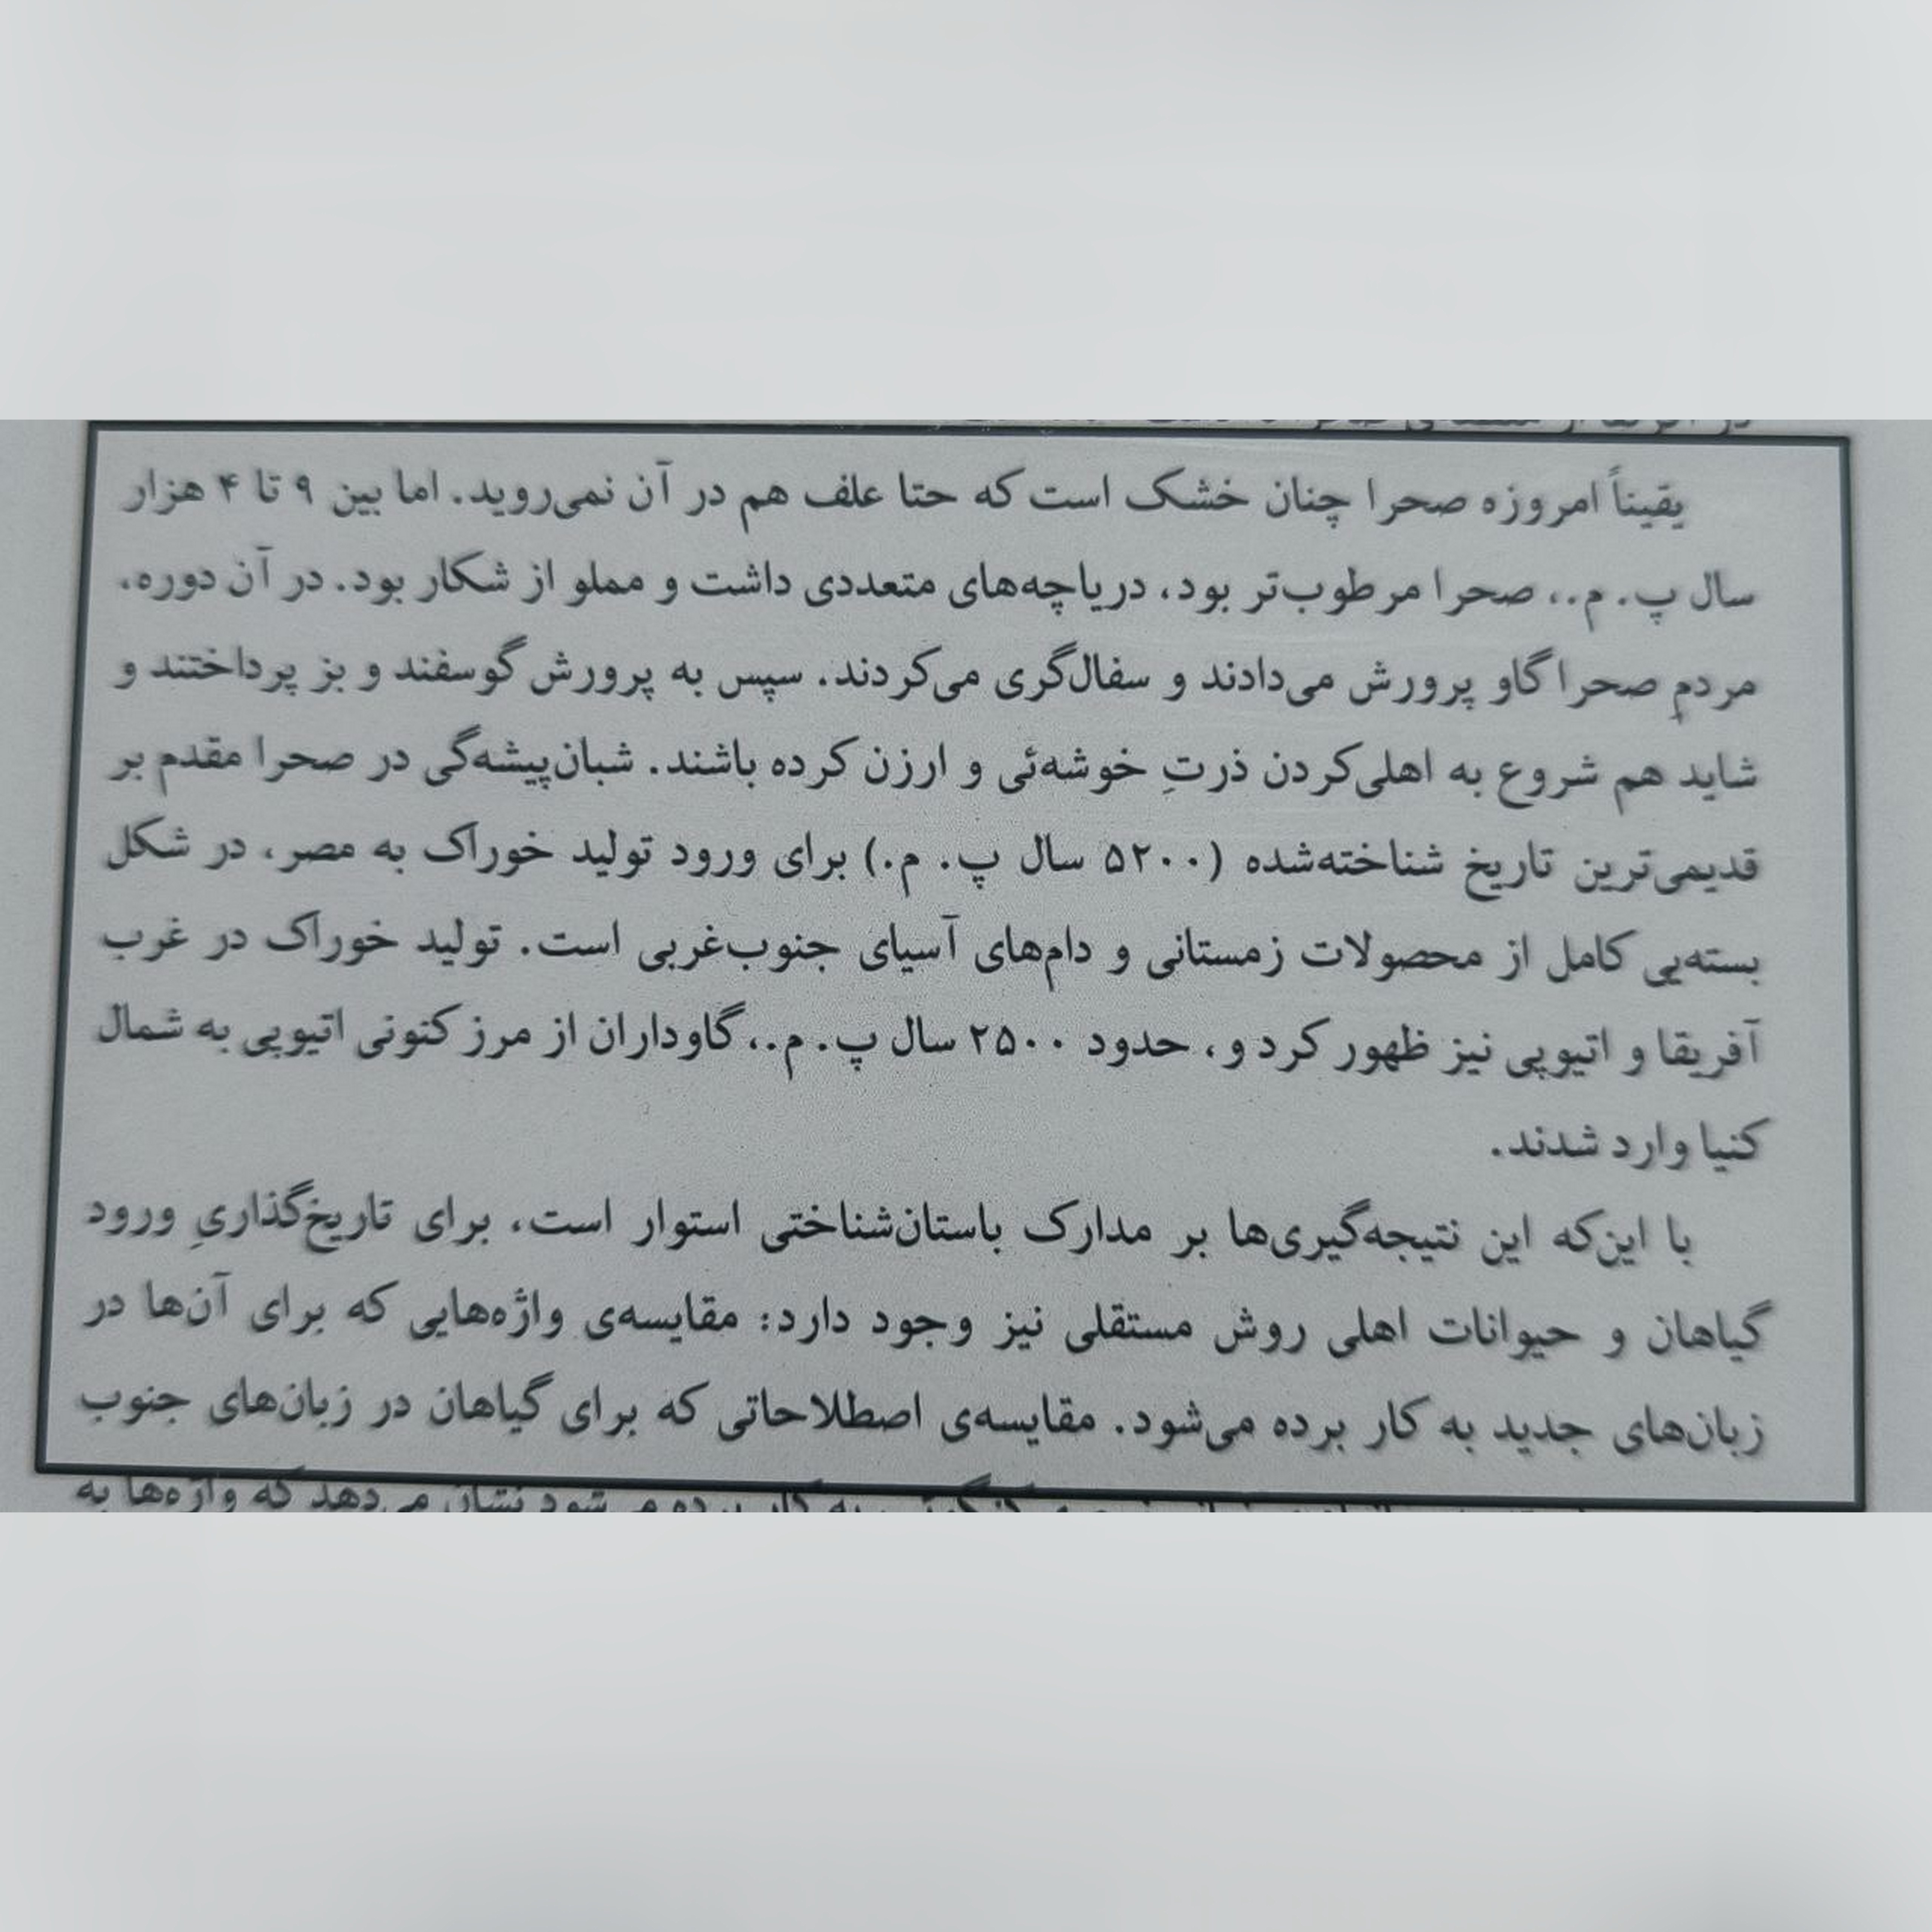 یقیناً امروزه صحرا چنان خشک است که حتا علف هم در آن نمی‌روید. اما بین ۹ تا ۴ هزار
سال پ. م.، صحرا مرطوب‌تر بود، دریاچه‌های متعددی داشت و مملو از شکار بود. در آن دوره،
مردمِ صحرا گاو پرورش می‌دادند و سفال‌گری می‌کردند. سپس به پرورش گوسفند و بز پرداختند و
شاید هم شروع به اهلی‌کردن ذرتِ خوشه‌ئی و ارزن کرده باشند. شبان‌پیشه‌گی در صحرا مقدم بر
قدیمی‌ترین تاریخ شناخته‌شده (۵۲۰۰ سال پ. م.) برای ورود تولید خوراک به مصر، در شکل
بسته‌یی کامل از محصولات زمستانی و دام‌های آسیای جنوب‌غربی است. تولید خوراک در غرب
آفریقا و اتیوپی نیز ظهور کرد و، حدود ۲۵۰۰ سال پ. م.، گاوداران از مرز کنونی اتیوپی به شمال
کنیا وارد شدند.
با این‌که این نتیجه‌گیری‌ها بر مدارک باستان‌شناختی استوار است، برای تاریخ‌گذاریِ ورود
گیاهان و حیوانات اهلی روش مستقلی نیز وجود دارد: مقایسه‌ی واژه‌هایی که برای آن‌ها در
زبان‌های جدید به کار برده می‌شود. مقایسه‌ی اصطلاحاتی که برای گیاهان در زبان‌های جنوب
به کار برده می‌شود نشان می‌دهد که واژه‌ها به